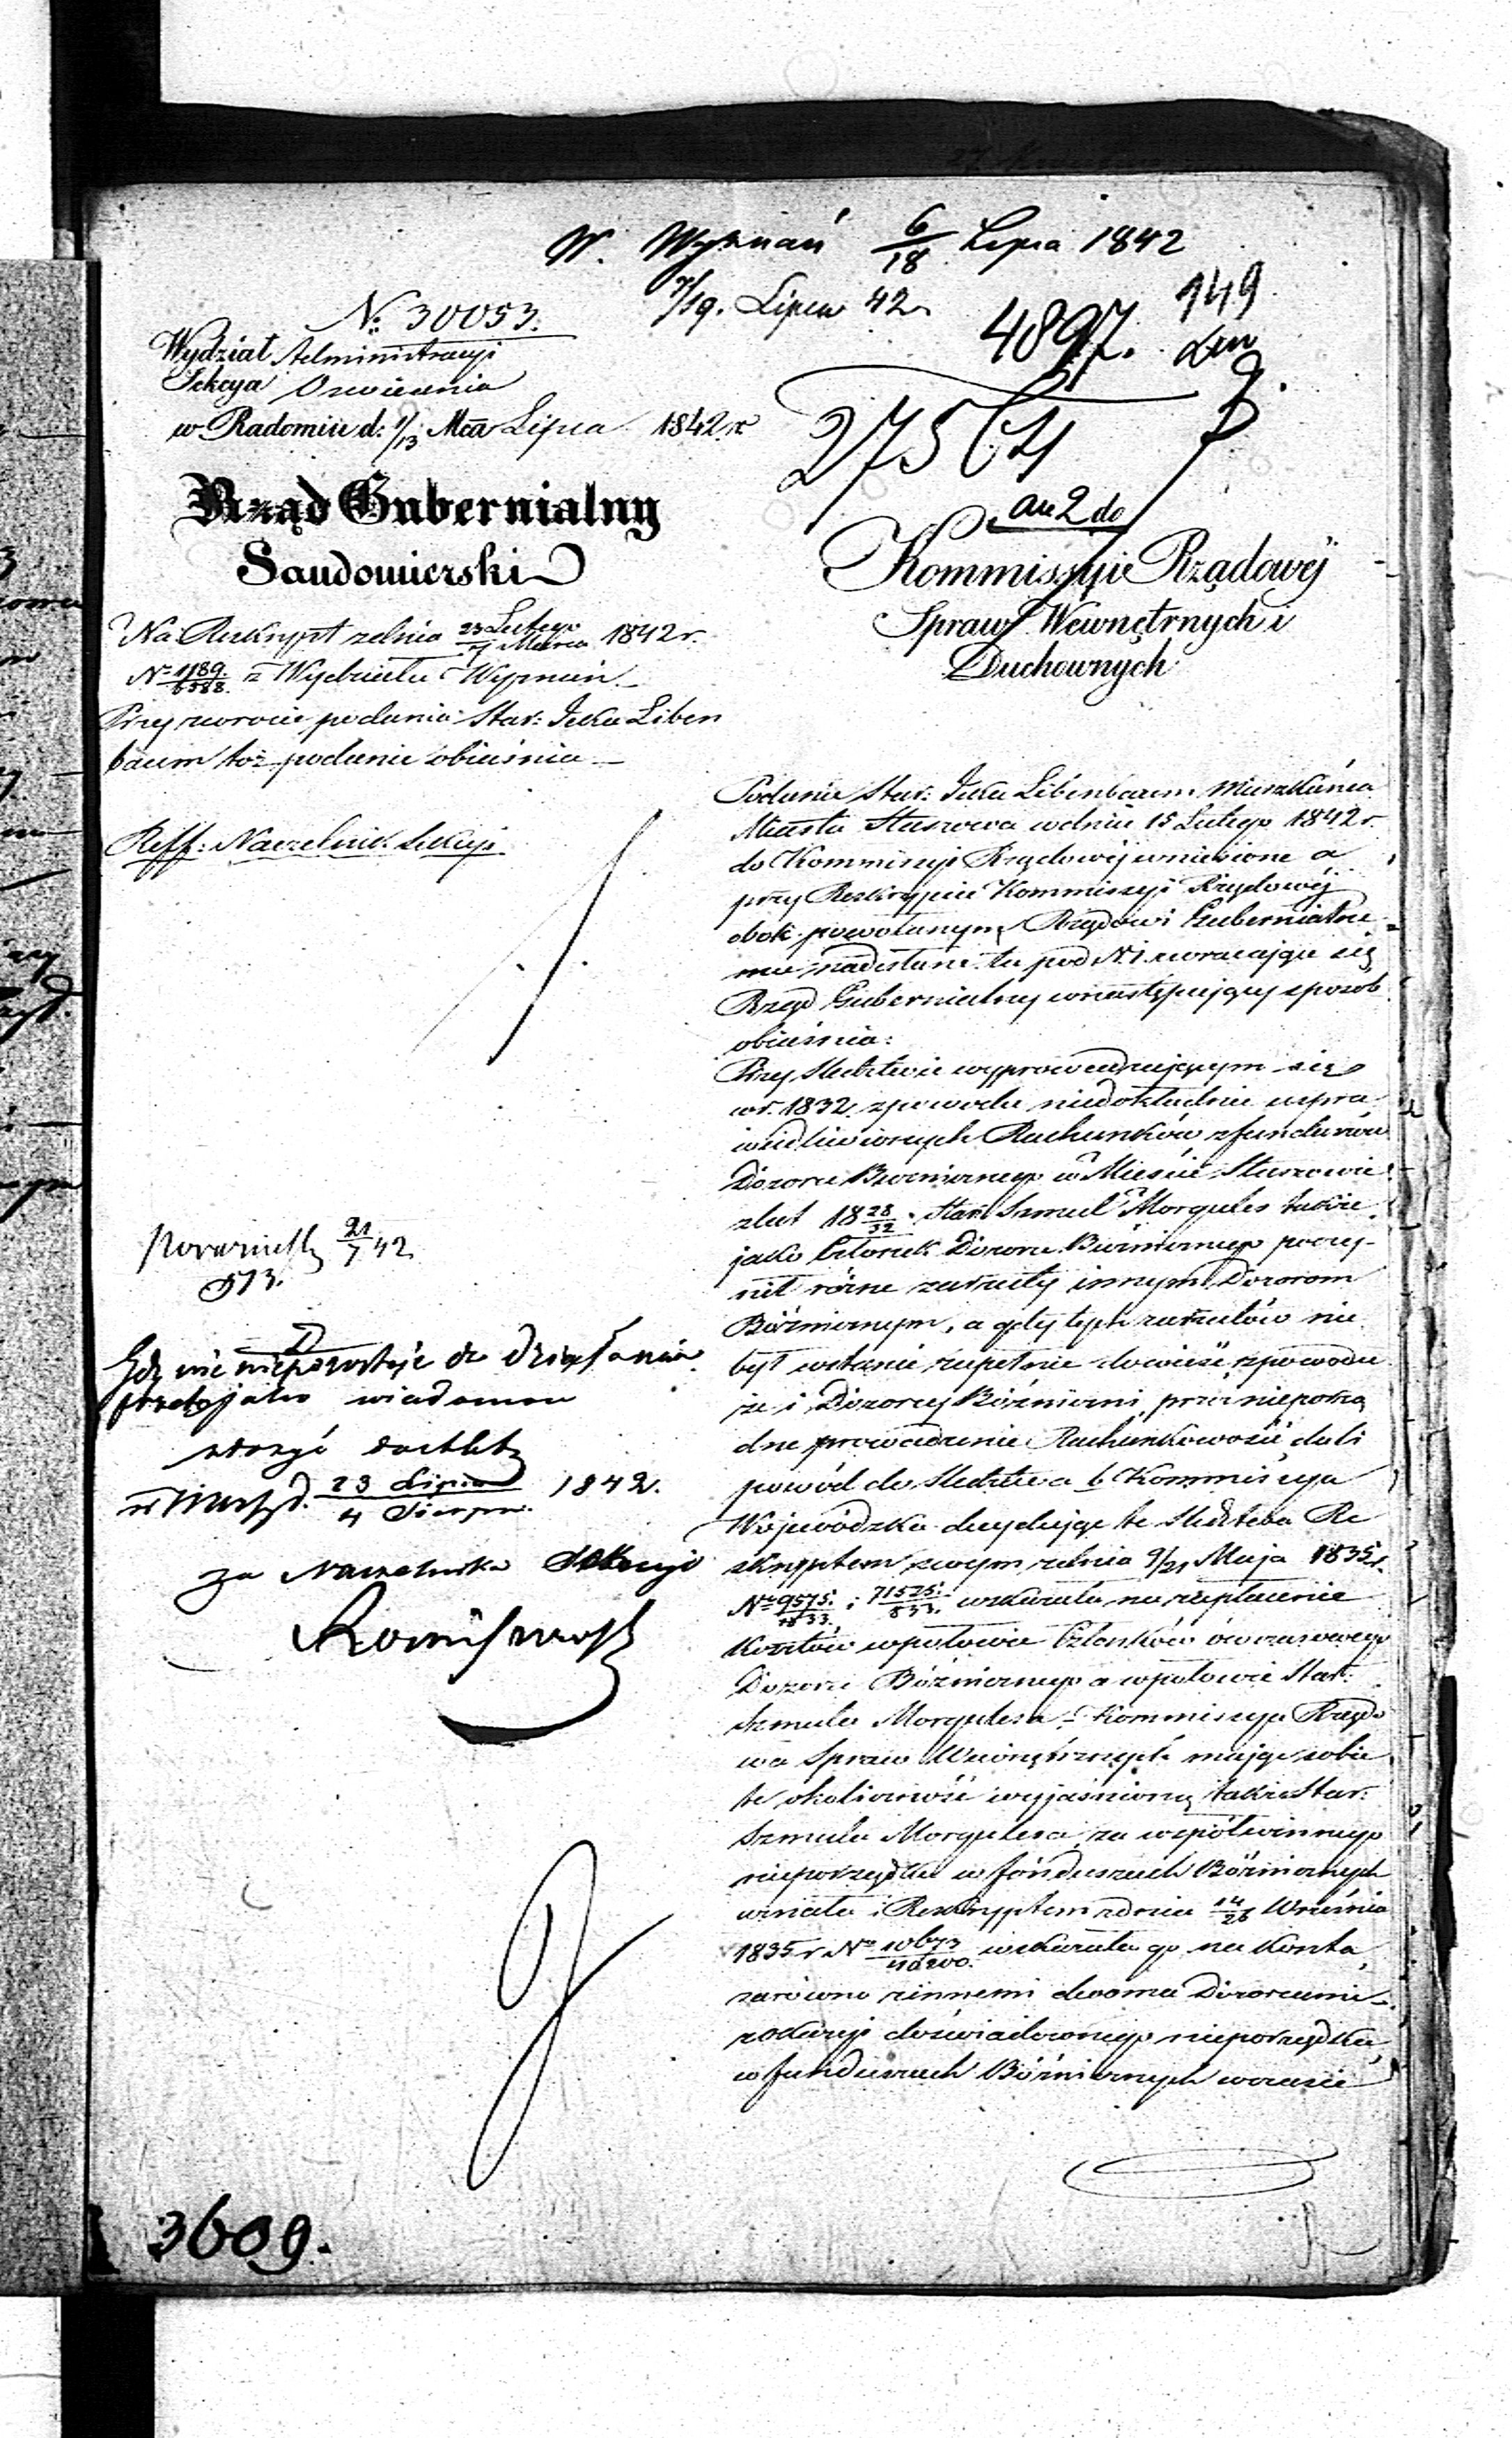 W. Wyznań 6/18 Lipca 1842
7/19. Lipca 42
149
4897.
№ 30053.
Wydział Administracyi
Sekcya Oswiecenia
w Radomiu d: 1/13 Mca Lipca 1842 r
Rząd Gubernialny
Sandomierski
Na Reskrypt zdnia 23 Lutego / 7 Marca 1842 r.
№ 1189./6588. z Wydziału Wyznań.
Przy zwrocie podania Star: Icka Liben
baum toż podanie obiaśnia
Reff: Naczelnik Sekcyi.
27564
an 2 do
Kommissyi Rządowéj
Spraw Wewnętrznych i
Duchownych
Podanie Star: Icka Libenbaum Mieszkańca
Miasta Staszowa wdniu 15 Lutego 1842 r.
do Kommissyi Rządowéj wniesione a
przy Reskrypcie Kommissyi Rządowéj
obok powołanym Rządowi Gubernialne
mu nadesłane tu pod № 1. zwracając się
Rząd Gubernialny wnastępujący sposób
obiaśnia:
Przy Śledztwie wyprowadzającym się
wr. 1832. zpowodu niedokładnie uspra
wiedliwionych Rachunków zfunduszów
Dozoru Bożnicznego w Mieście Staszowie
zlat 18 28/32. Star: Szmul Morgules także
jako Członek Dozoru Bóżnicznego poczy-
nił różne zarzuty innym Dozorcom
Bóżnicznym, a gdy tych zarzutów nie
był wstanie zupełnie dowieść, zpowodu
że i Dozorcy Bóżniczni przez nieporzą
dne prowadzenie Rachunkowości dali
powód do Śledztwa b. Kommissya
Wojewódzka decydując te Śledztwa Re
skryptem swym zdnia 9/21 Maja 1835 r.
№ 9575./1833. i 71525./833. wskazała na zapłacenie
Kosztów wpołowie Członków ówczasowego
Dozoru Bóżnicznego a wpołowie Star:
Szmula Morgulesa – Kommissya Rządo
wa Spraw Wewnętrznych mając sobie
te okoliczność wyjaśnioną także Star:
Szmula Morgulesa za współwinnego
nieporządku w fónduszach Bóżnicznych
uznała i Reskryptem zdnia 14/26 Września
1835 r № 10673 wskazała go na Koszta,
zarówno zinnemi dwoma Dozorcami
zokazyi doświadczonego nieporządku
w funduszach Bóżnicznych wczasie
21/7 42
573.
Gdy nic niepozostaje do działania
przeto jako wiadomou
złożyć do akt
w Warsz. d. 23 Lipca / 4 Sierpn. 1842.
za Naczelnika Sekcyi
3609.